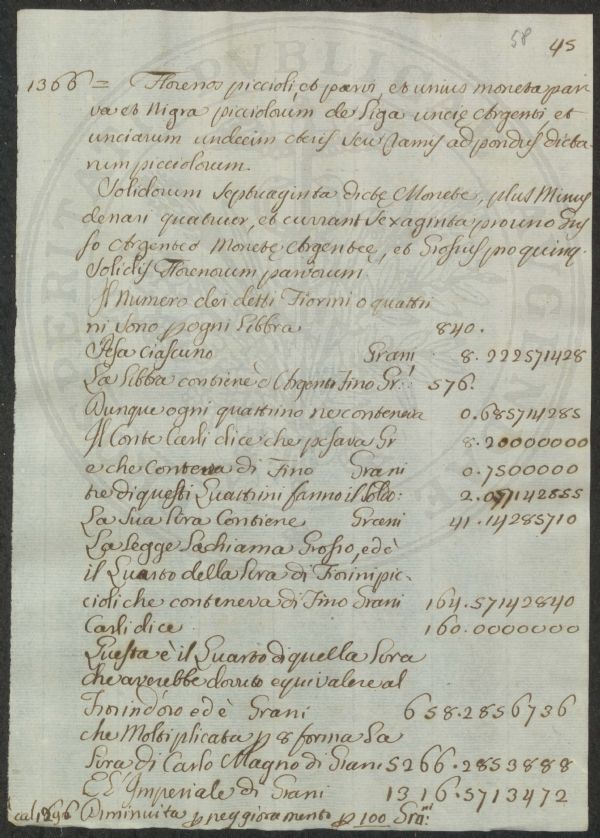 58
45
1366 = Florenos piccioli, et parvi, et unius moneta par
va et nigra picciolorum de Liga uncie Argenti et
unciarum undecim Aeris seu Ramis ad pondus dicta
rum picciolorum.
Solidorum septuaginta dictę Monete, plus Minus
denari quatuor, et currant sexaginta pro uno Gros
so Argenteo Monetę Argenteę, et Grossus pro quinq.
Solidis Florenorum parvorum.
Il numero dei detti Fiorini o quattri
ni sono p ogni Libbra 840.
Pesa ciascuno Grani 8.222571428
La Libbra contiene d'Argento Fino Gr: 576.
Dunque ogni quattrino ne conteneva 0.685714285
Il Conte Carli dice che pesava Gr 8.20000000
e che Conteneva di Fino Grani 0.7500000
tre di questi Quattrini fanno il soldo: 2.057142855
La Sua Lira Contiene Grani 41.14285710
La Legge La chiama Grosso, ed è
il Quarto della Lira di Fiorini pic-
cioli che conteneva di Fino Grani 164.57142840
Carli dice 160.0000000
Questa è il Quarto di quella Lira
che averebbe dovuto equivalere al
Fiorin d'oro ed è Grani 658.2856736
che Moltiplicata p 8 forma La
Lira di Carlo Magno di Grani 5266.2853888
E L'Imperiale di Grani 1316.5713472
cal 1296 Diminuita p peggioramento p 100 Gra:ni
PERITA PVBLICAE